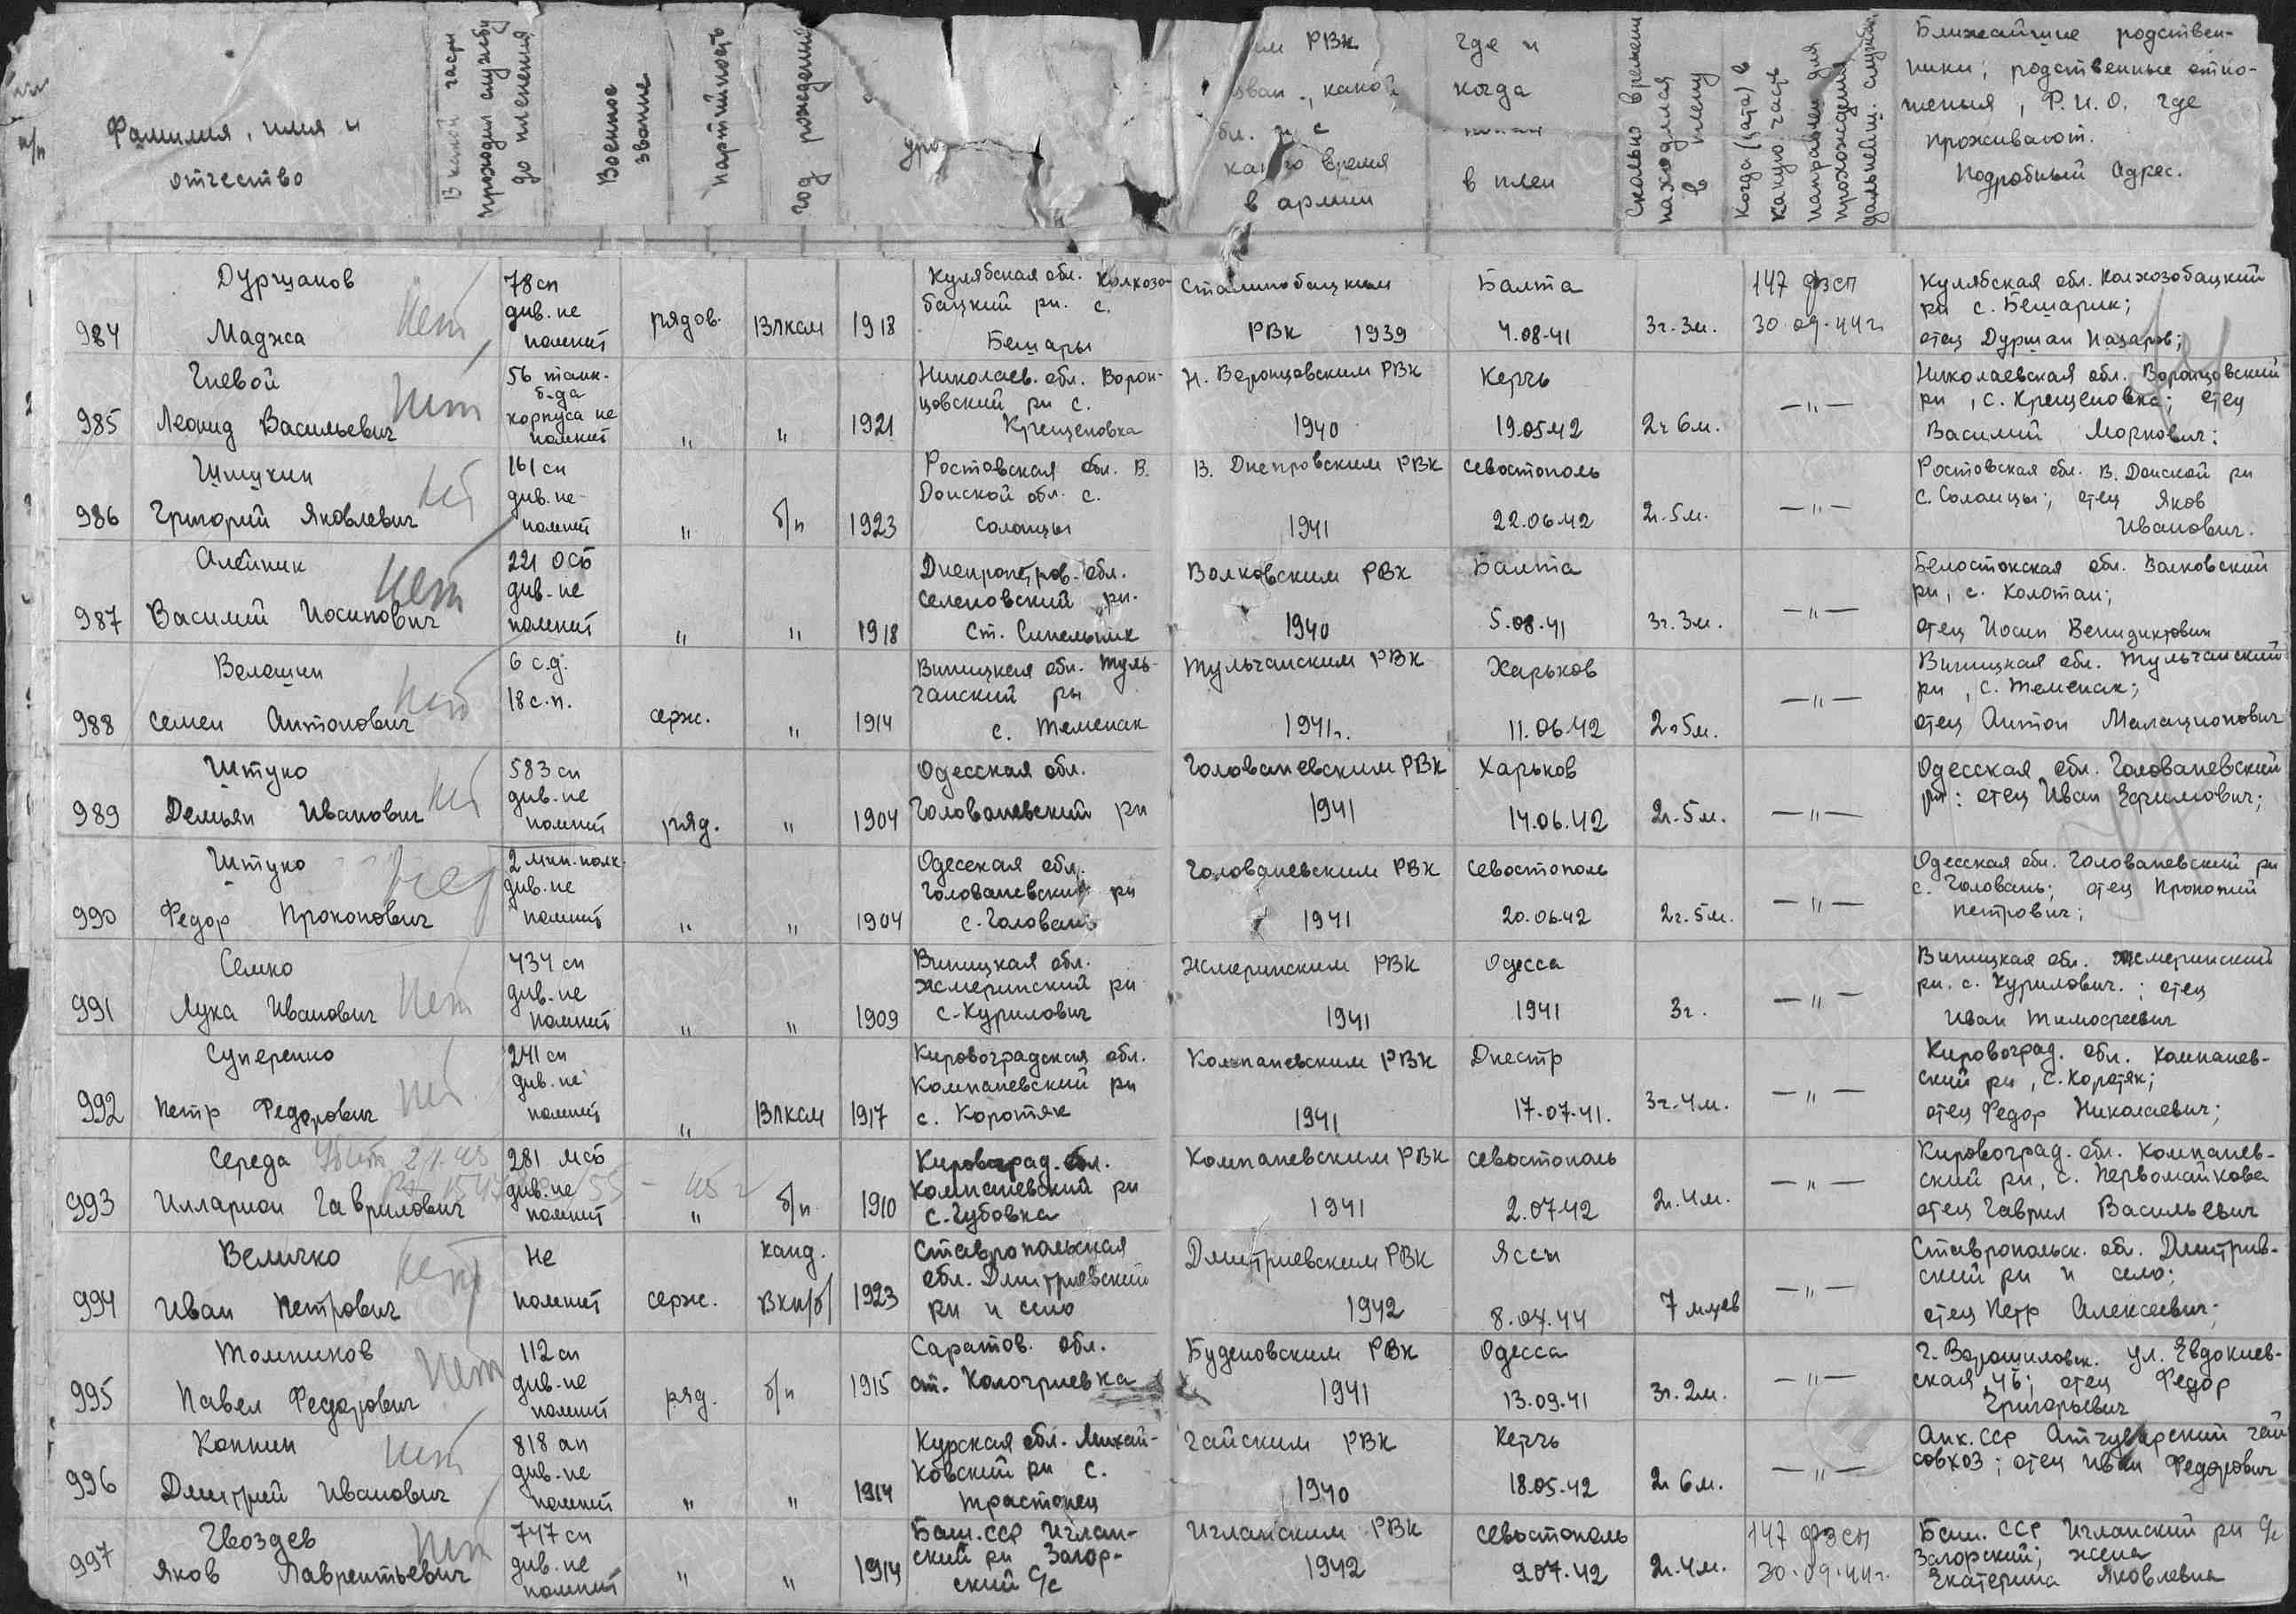 п/п
Фамилия, имя и
отчество
В какой части
проходил службу
до пленения
Военное
звание
партийность
год рождения
уро
им РВК
зван , какой
бл. и с
как го время
в армии
где и
когда
в плен
Сколько времени
находился
в плену
Когда (дата) в
какую часть
направлен для
прохождения
дальнейш. службы
Ближайшие родствен-
ники, родственные отно-
шения, Ф.И.О. где
проживают.
Подробный адрес.
984
Дуршанов
Маджса
нет
78 сп
див. не
помнит
рядов.
ВЛКСМ
1918
Кулябская обл. Колхозо-
бацкий рн. с.
Бешары
Сталинобацким
РВК 1939
Балта
4.08.41
3г. 3м.
147 фзсп
30.09.44г.
Кулябская обл. Колхозобацкий
рн с. Бешарик;
отец Дуршан Назаров;
985
Гневой
Леонид Васильевич
нет
56 танк.
б-да
корпуса не
помнит
"
"
1921
Николаев. обл. Ворон-
цовский рн с.
Крещеновка
Н. Воронцовским РВК
1940
Керчь
19.05.42
2г 6м.
— " —
Николаевская обл. Воронцовский
рн, с. Крещеновка; отец
Василий Маркович;
986
Шмукин
Григорий Яковлевич
нет
161 сп
див. не
помнит
"
б/п
1923
Ростовская обл. В.
Донской обл. с.
Солонцы
В. Днепровским РВК
1941
Севостополь
22.06.42
2г. 5м.
— " —
Ростовская обл. В. Донской рн
с. Солонцы; отец Яков
Иванович.
987
Олейник
Василий Иосипович
нет
221 ОСБ
див. не
помнит
"
"
1918
Днепропетров. обл.
Селеновский рн.
Ст. Синельник
Волковским РВК
1940
Балта
5.08.41
3г. 3м.
— " —
Белостокская обл. Волковский
рн, с. Колотаи;
отец Иосип Венидиктович
988
Волошин
Семен Антонович
нет
6 с.д.
18 с.п.
серж.
"
1914
Виницкая обл. Туль-
чанский рн
с. Теменак
Тульчанским РВК
1941г.
Харьков
11.06.42
2г 5м.
— " —
Виницкая обл. Тульчанский
рн, с. Теменак;
отец Антон Малационович
989
Штуко
Демьян Иванович
нет
583 сп
див. не
помнит
ряд.
"
1904
Одесская обл.
Голованевский рн
Голованевским РВК
1941
Харьков
14.06.42
2г. 5м.
— " —
Одесская обл. Голованевский
рн: отец Иван Ефимович;
990
Штуко
Федор Прокопович
нет
2 мин. полк.
див. не
помнит
"
"
1904
Одесская обл.
Голованевский рн
с. Головань
Голованевским РВК
1941
Севостополь
20.06.42
2г. 5м.
— " —
Одесская обл. Голованевский рн
с. Головань; отец Прокопий
Петрович;
991
Семко
Лука Иванович
нет
434 сп
див. не
помнит
"
"
1909
Виницкая обл.
Жмеринский рн
с. Курилович
Жмеринским РВК
1941
Одесса
1941
3г.
— " —
Виницкая обл. Жмеринский
рн. с. Курилович.; отец
Иван Тимофеевич
992
Суперенко
Петр Федорович
нет
241 сп
див. не
помнит
"
ВЛКСМ
1917
Кировоградская обл.
Компаневский рн
с. Коротяк
Компаневским РВК
1941
Днестр
17.07.41.
3г. 4м.
— " —
Кировоград. обл. Компанев-
ский рн, с. Коротяк;
отец Федор Николаевич;
993
Середа
Илларион Гаврилович
281 мсб
див. не
помнит
"
б/п
1910
Кировоград. обл.
Компаневский рн
с. Губовка
Компаневским РВК
1941
Севостополь
2.07.42
2г. 4м.
— " —
Кировоград. обл. Компанев-
ский рн, с. Первомайкова
отец Гаврил Васильевич
994
Величко
Иван Петрович
нет
Не
помнит
серж.
канд.
ВКП/б/
1923
Ставропольская
обл. Дмитриевский
рн и село
Дмитриевским РВК
1942
Яссы
8.04.44
7 м-цев
— " —
Ставропольск. обл. Дмитрив-
ский рн и село;
отец Петр Алексеевич;
995
Толпиков
Павел Федорович
нет
112 сп
див. не
помнит
ряд.
б/п
1915
Саратов. обл.
ст. Кологриевка
Буденовским РВК
1941
Одесса
13.09.41
3г. 2м.
— " —
г. Ворошиловск. ул. Евдокиев-
ская, 46; отец Федор
Григорьевич
996
Коппин
Дмитрий Иванович
нет
818 ап
див. не
помнит
"
"
1914
Курская обл. Михай-
ковский рн с.
Трастонец
Гайским РВК
1940
Керчь
18.05.42
2г 6м.
— " —
совхоз; отец Иван Федорович
997
Гвоздев
Яков Лаврентьевич
нет
747 сп
див. не
помнит
"
"
1914
Баш. ССР Иглан-
ский рн Загор-
ский с/с
Игланским РВК
1942
Севостополь
9.07.42
2г. 4м.
147 фзсп
30.09.44г.
Баш. ССР Игланский рн с/с
Загорский; жена
Екатерина Яковлевна